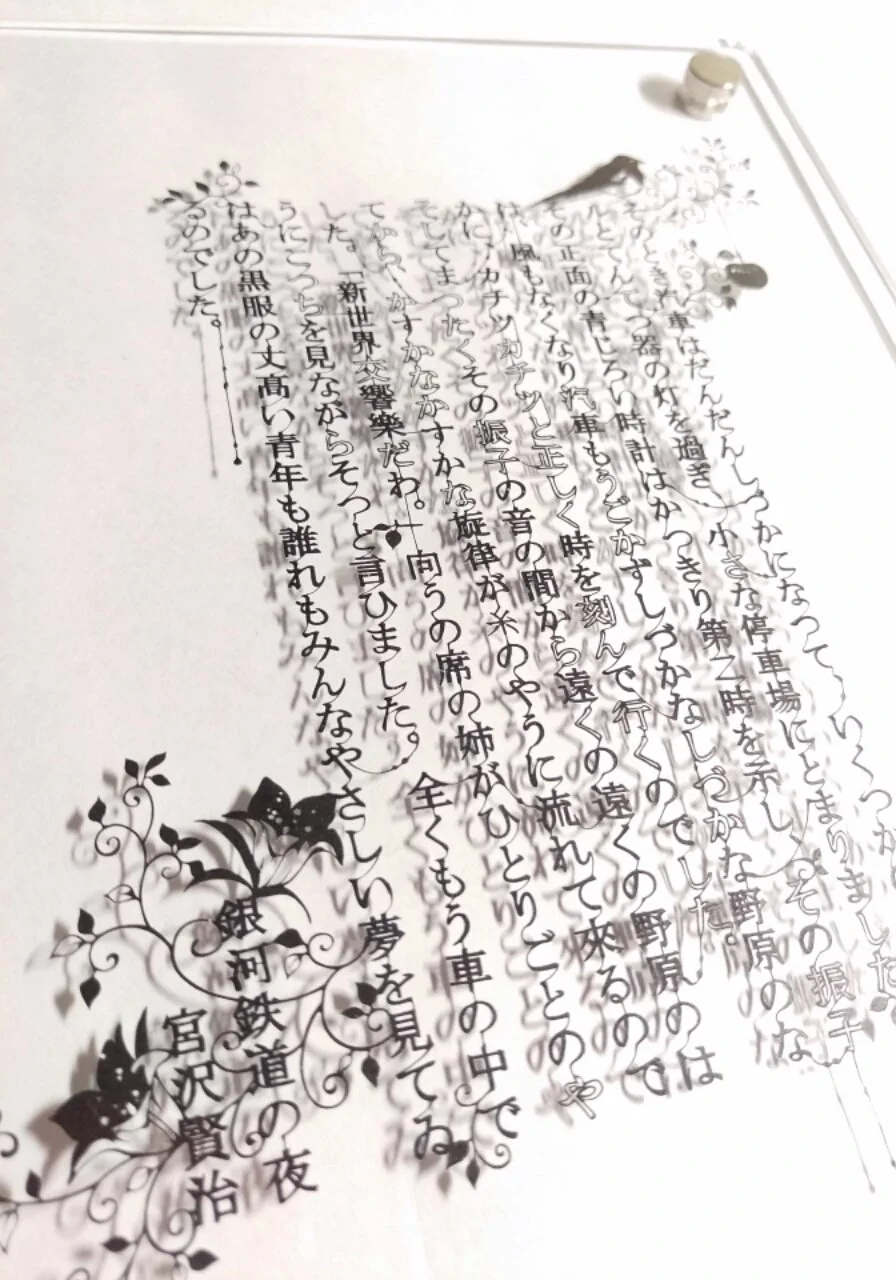 そのとき汽車はだんだんしづかになって、いくつか
ルとてんてつ器の灯を過ぎ、小さな停車場にとまりました。
その正面の青じろい時計はかつきり第二時を示し、その振子
は、風もなくなり汽車もうごかずしづかなしづかな野原のな
かに、カチツカチツと正しく時を刻んで行くのでした。
そしてまつたくその振子の音の間から遠くの遠くの野原のは
てから、かすかなかすかな旋律が糸のやうに流れて來るので
した。「新世界交響樂だわ。」向うの席の姉がひとりごとのや
うにこつちを見ながらそつと言ひました。全くもう車の中で
はあの黒服の丈髙い青年も誰れもみんなやさしい夢を見てゐ
るのでした。
銀河鉄道の夜
宮沢賢治